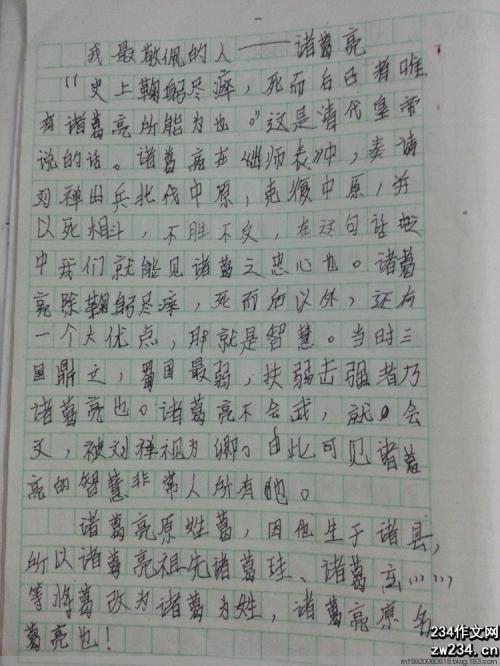 我最敬佩的人——诸葛亮
“史上鞠躬尽瘁，死而后已者唯
有诸葛亮所能为也。”这是清代皇帝
说的话。诸葛亮在《出师表》中，奏请
刘禅出兵北伐中原，克復中原，并
以死相斗，不胜不归，在这句话
中我们就能见诸葛之忠心也。诸葛
亮除鞠躬尽瘁，死而后以外，还有
一个大优点，那就是智慧。当时三
国鼎立，蜀国最弱，扶弱击强者乃
诸葛亮也。诸葛亮不会武，就会
文，被刘禅视为卿。由此可见诸葛
亮的智慧非常人所有也。
诸葛亮原姓葛，因他生于诸县，
所以诸葛亮祖先诸葛珪、诸葛玄……
等将葛改为诸葛为姓，诸葛亮原名
葛亮也！
234作文网
zw234.cn
m15920060518.blog.163.com